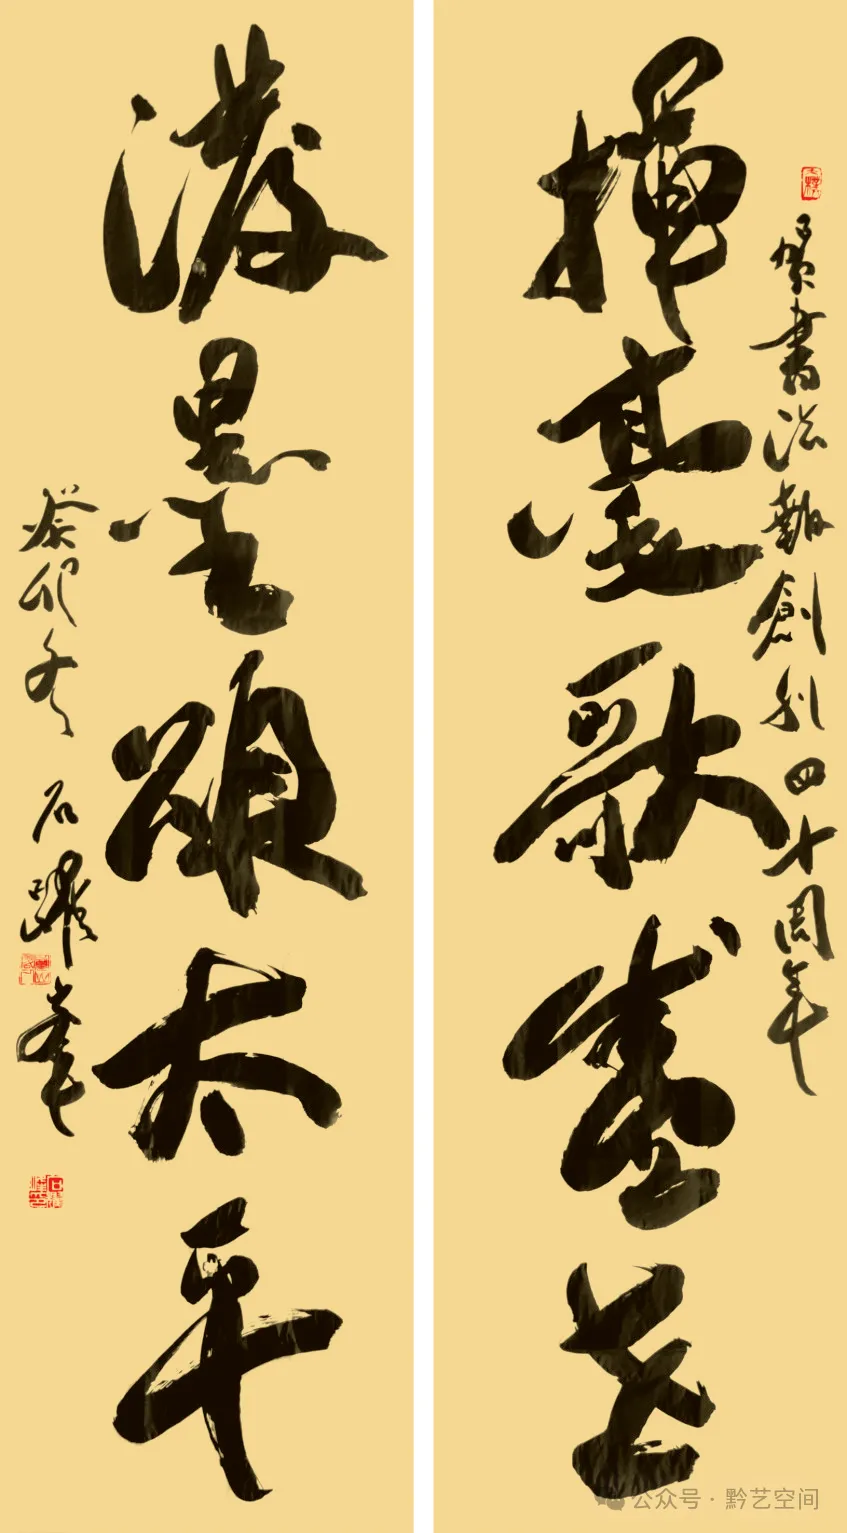 賀書法報創刊四十周年
揮毫歌盛世
潑墨頌太平
癸卯冬 石躍峯
公众号 · 黔艺空间